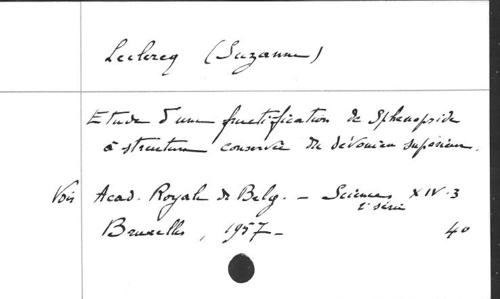 Leclercq (Suzanne)
Etude d'une fructification de Sphenopside
à structure conservée du dévonien supérieur.
Voir Acad. Royale de Belg. – Sciences XIV-3
2e série
Bruxelles, 1957 – 40